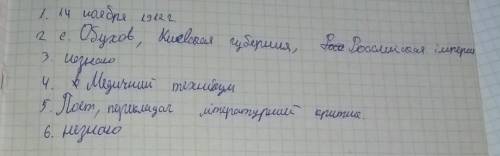 1. 14 ноября 1912 г
2 с. Обухов, Киевская губерния, Российская импери
3. незнаю
4. Медичний технікум
5. Поет, перекладач літературний критик.
6. незнаю